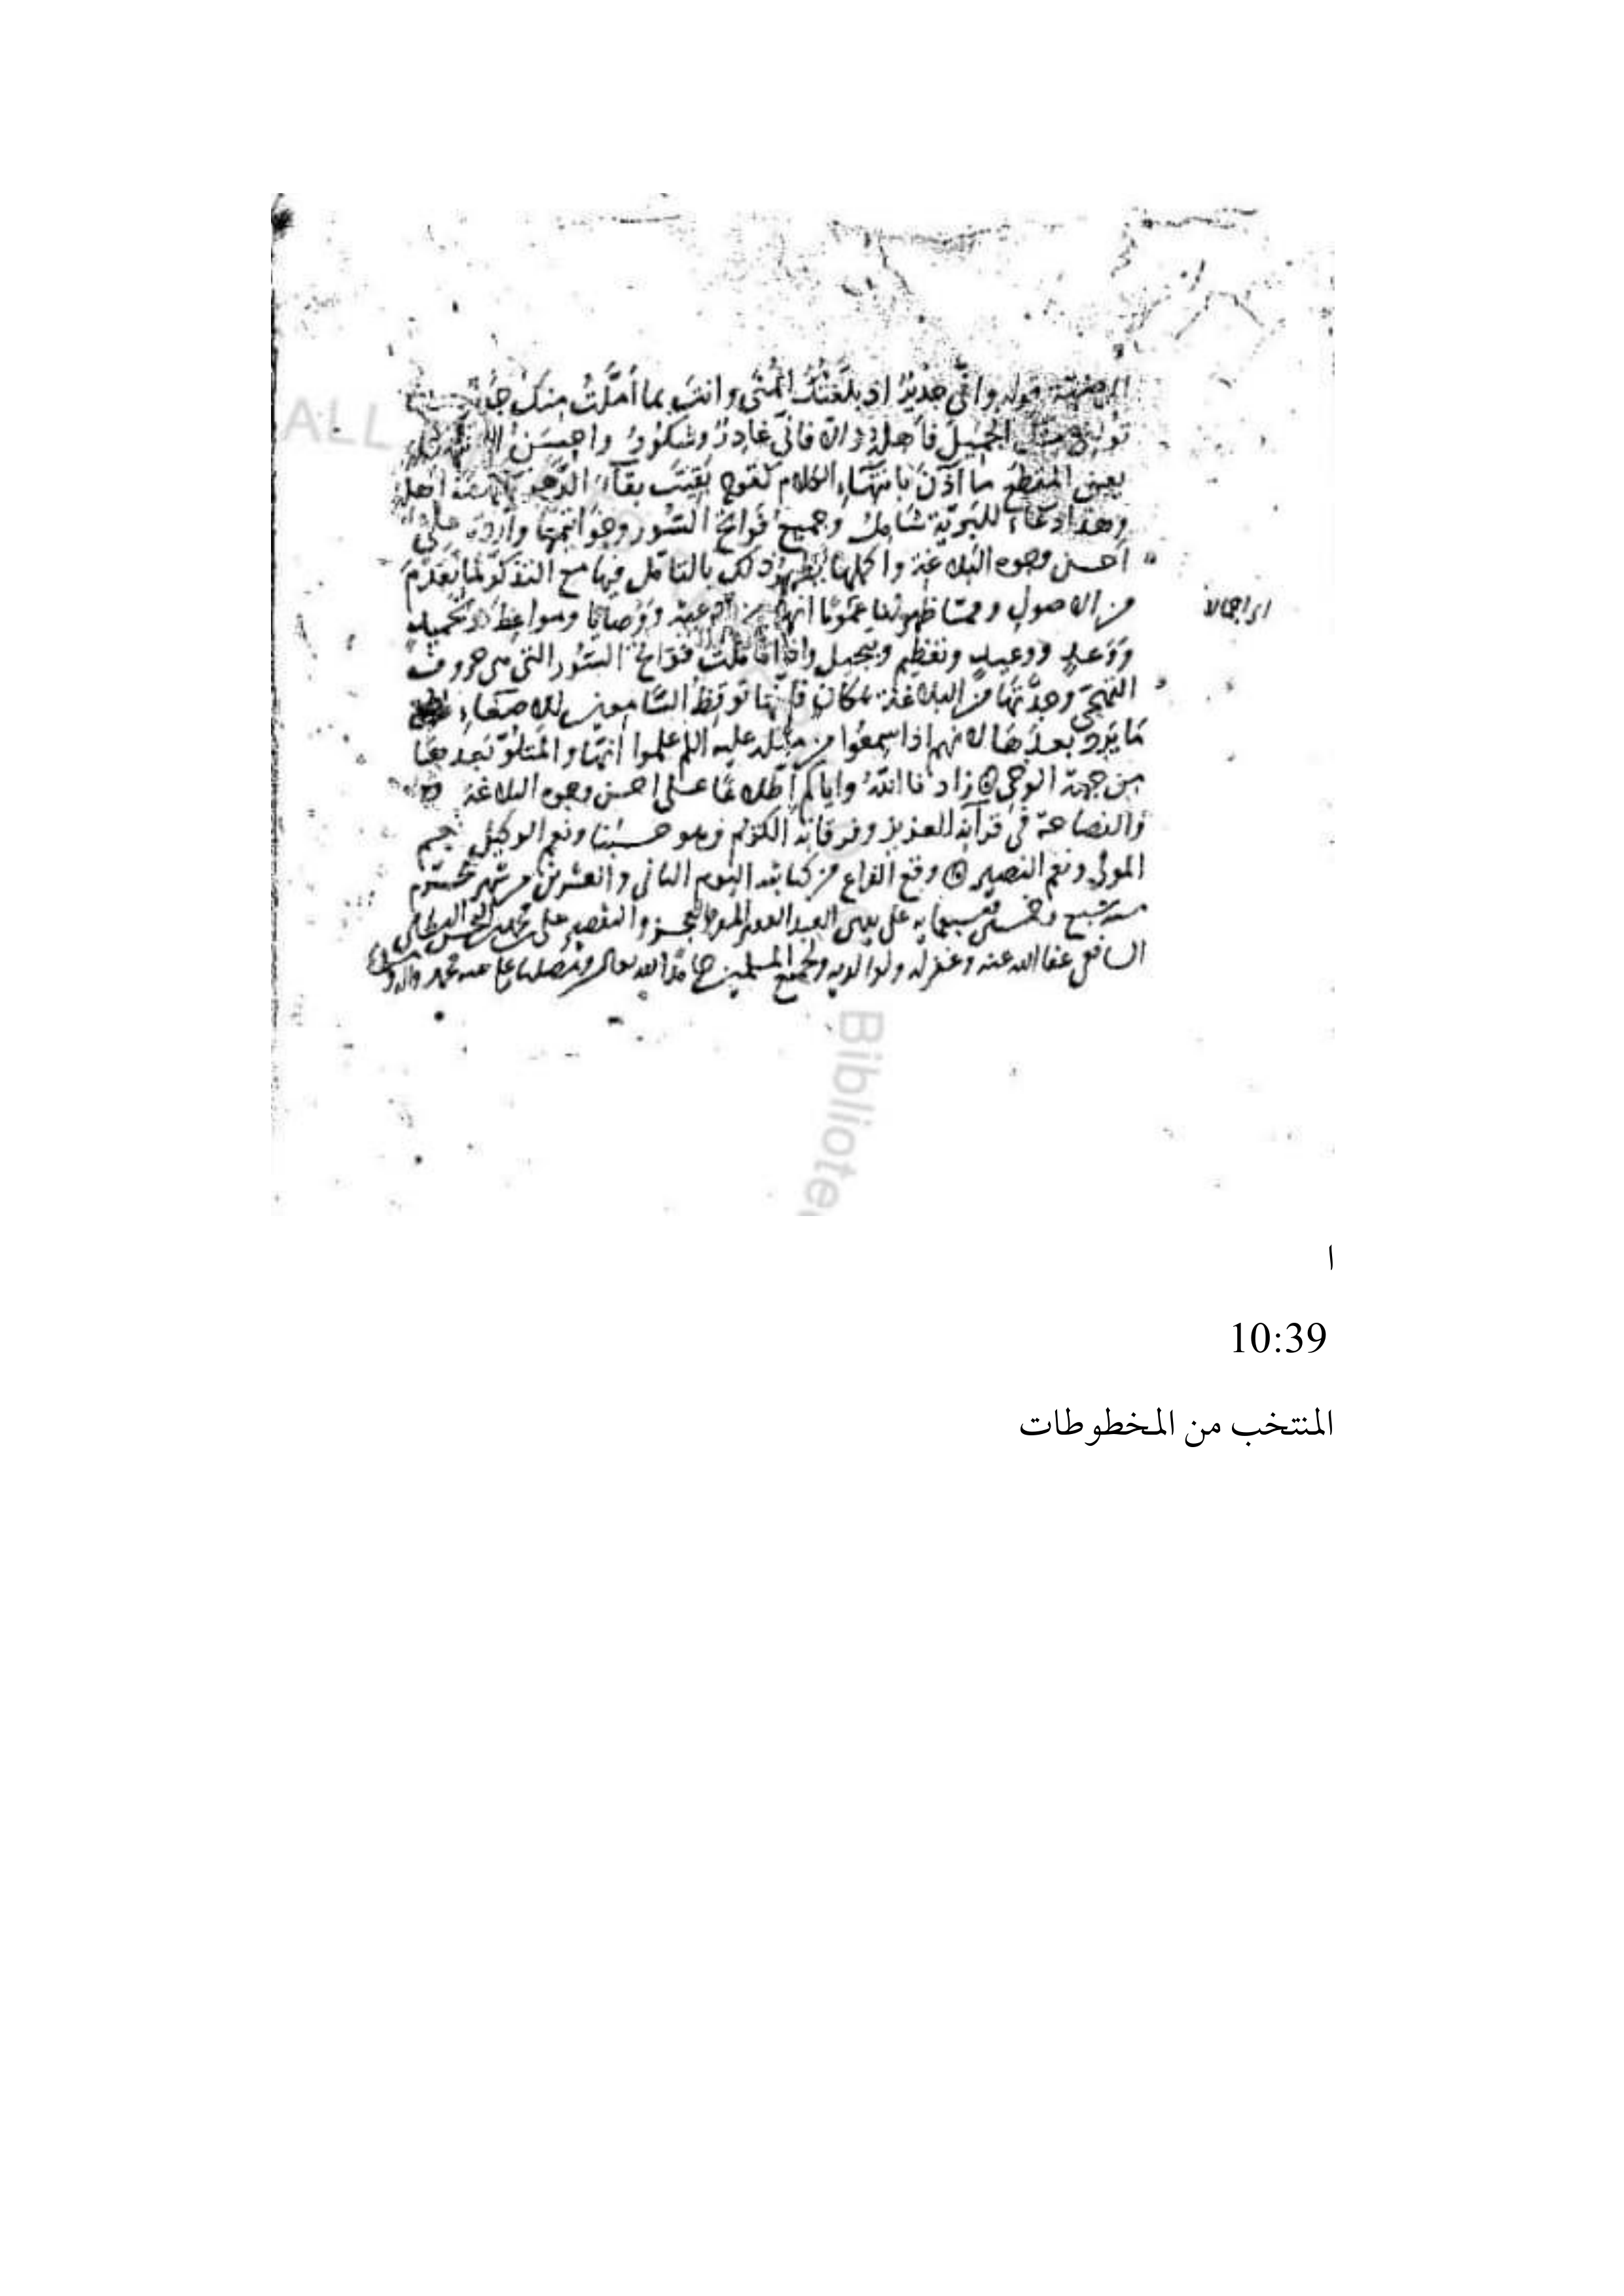 قوله واني جدير اذ بلغتك المنى وانت بما املت منك جدير
الجميل فاهله والا فاني عاذر وشكور واحسن
ما آذن بانتهاء الكلام كقوله بقيت بقاء الدهر يا كهف اهله
وهذا دعاء للبرية شامل وجميع فواتح السور وخواتمها واردة على
احسن وجوه البلاغة واكملها يظهر ذلك بالتامل فيها مع التذكر لما تقدم
من الاصول ومما ظهر لنا عموما انها ادعية ووصايا ومواعظ وتحميد
ووعد ووعيد وتعظيم وتبجيل واذا تاملت فواتح السور التي هي حروف
التهجي وجدتها من البلاغة بمكان فانها توقظ السامعين للاصغاء
ما يرد بعدها لانهم اذا سمعوا من عليه الم علموا انها والمتلو بعدها
من جهة الوحي زادنا الله واياكم اطلاعا على احسن وجوه البلاغة
والفصاحة في قرآنه العزيز وفرقانه الكريم وهو حسبنا ونعم الوكيل
المولى ونعم النصير وقع الفراغ من كتابته اليوم الثاني والعشرين من شهر محرم
سنة سبع على يدي العبد الفقير بالعجز والتقصير
الشافعي عفا الله عنه وغفر له ولوالديه ولجميع المسلمين حامدا لله تعالى ومصليا على محمد وآله
ALL
Bibliote
ا
10:39
المنتخب من المخطوطات